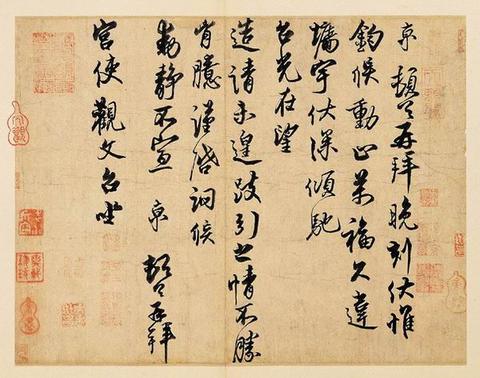 京 頓首再拜晚刻伏惟
鈞候動止萬福久違
墉宇伏深傾馳
台光在望
造請未遑跂引之情不勝
胷臆謹啓詗候
動靜不宣 京 頓首再拜
宮使觀文台坐